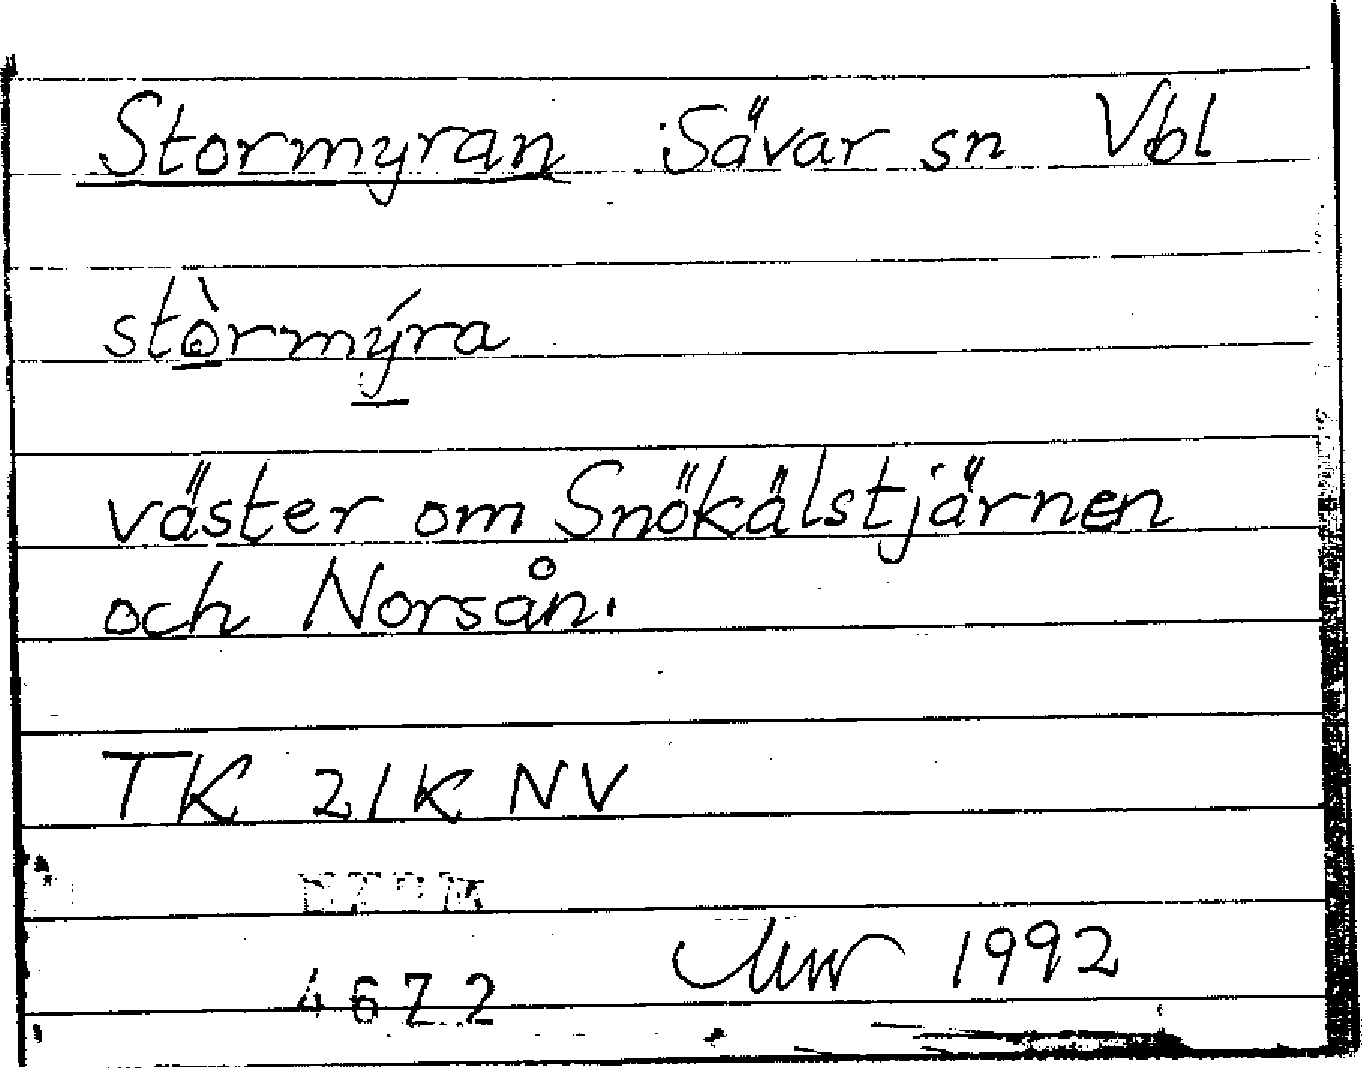 Stormyran Sävar sn Vbl
stòrmýra
väster om Snökälstjärnen
och Norsån.
TK 21K NV
1992
4672